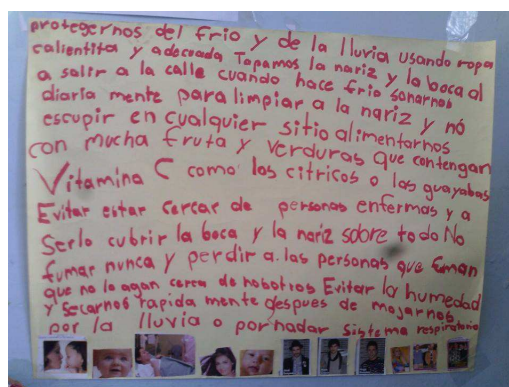 protegernos del frio y de la lluvia usando ropa
calientita y adecuada Tapamos la nariz y la boca al
a salir a la calle cuando hace frio sonarnos
diaria mente para limpiar a la nariz y nó
escupir en cualquier sitio alimentarnos
con mucha fruta y verduras que contengan
Vitamina C como los citricos o las guayabas
Evitar estar cercar de personas enfermas y a
Serlo cubrir la boca y la nariz sobre todo No
fumar nunca y perdir a las personas que fuman
que no lo agan cerca de nosotros Evitar la humedad
y secarnos rapida mente despues de mojarnos
por la lluvia o por nadar sistema respiratorio